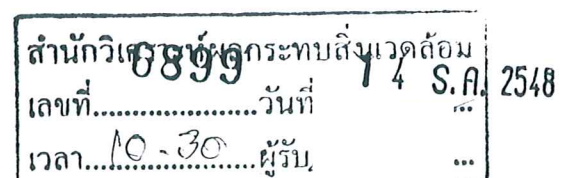 สำนักวิเคราะห์ผลกระทบสิ่งแวดล้อม
เลขที่......................วันที่ 14 ธ.ค. 2548
เวลา...10-30...ผู้รับ